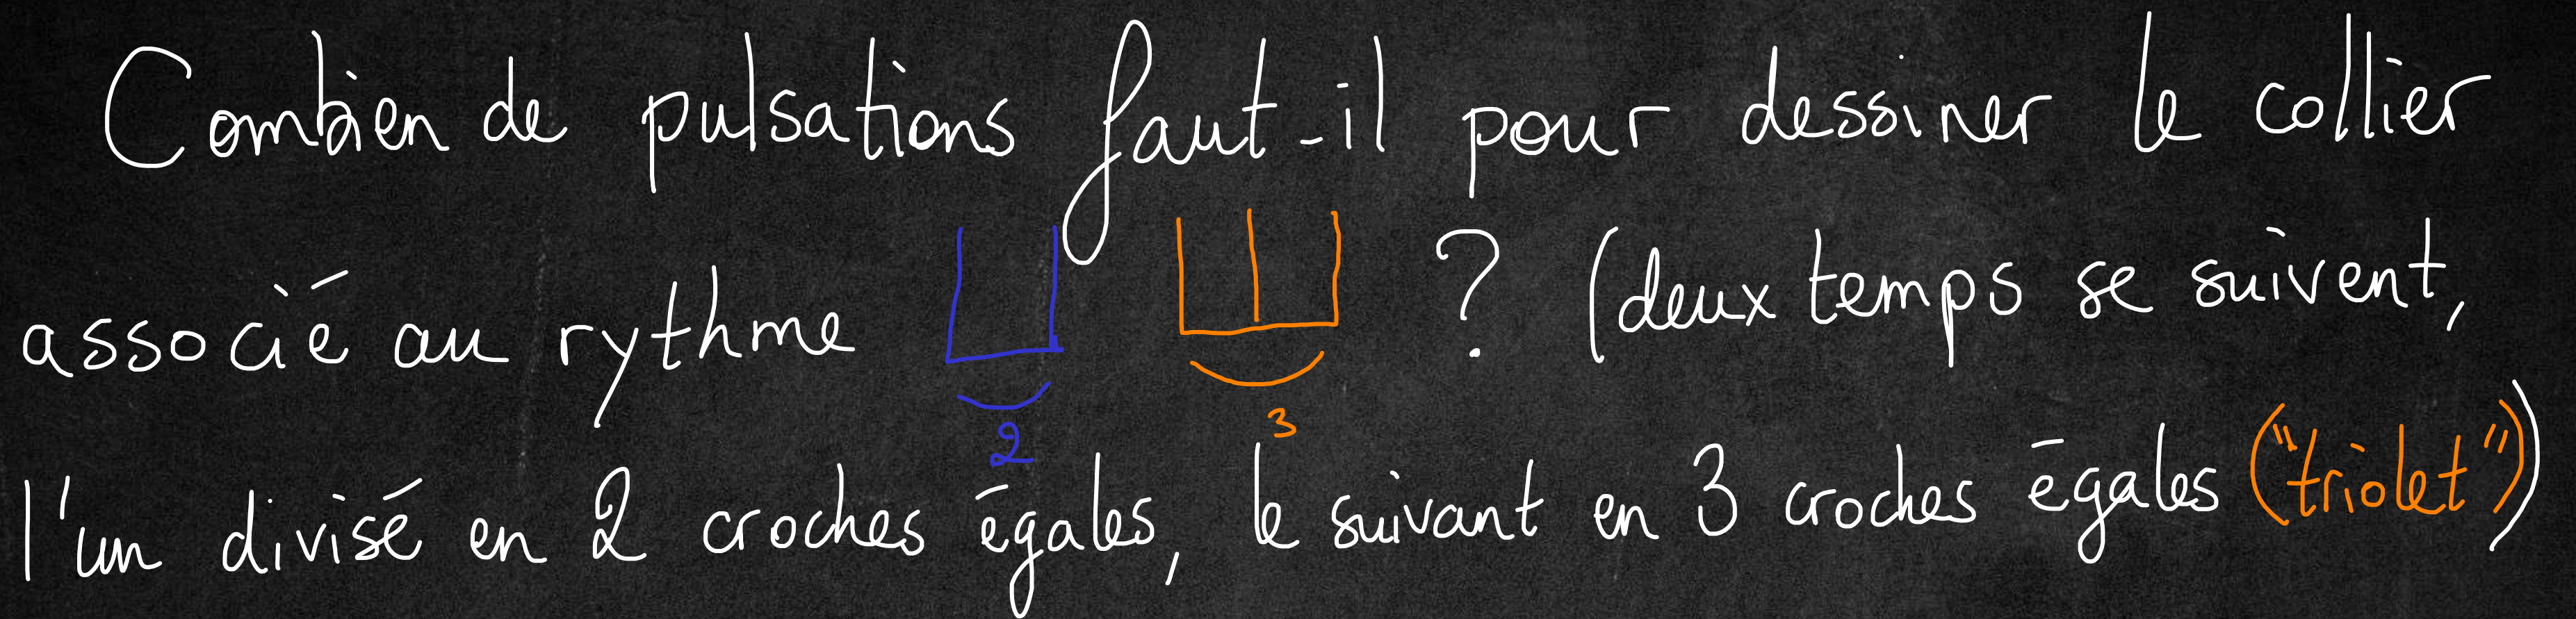 Combien de pulsations faut-il pour dessiner le collier
associé au rythme ? (deux temps se suivent,
2 3
l'un divisé en 2 croches égales, le suivant en 3 croches égales ("triolet"))